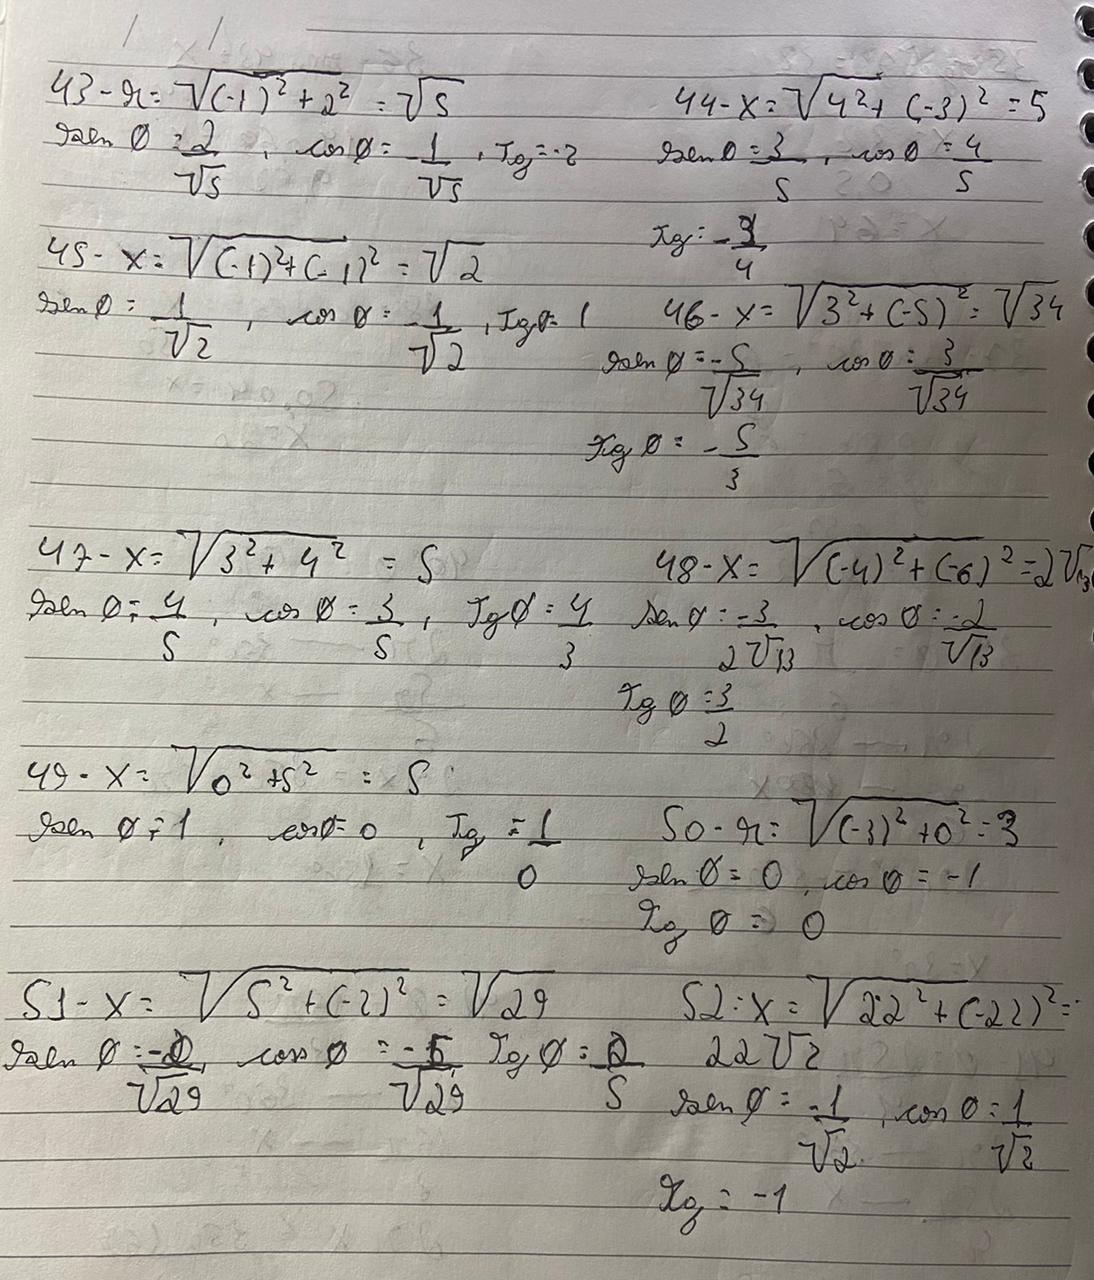 43-r= √(-1)²+2² = √5
sen θ = 2/√5, cos θ = -1/√5, Tg = -2
44-x = √4²+(-3)² = 5
sen θ = 3/5, cos θ = 4/5
Tg = -3/4
45- x = √(-1)²+(-1)² = √2
sen θ = 1/√2, cos θ = -1/√2, Tg θ = 1
46-x = √3²+(-5)² = √34
sen θ = -5/√34, cos θ = 3/√34
Tg θ = -5/3
47-x = √3²+4² = 5
sen θ = 4/5, cos θ = 3/5, Tg θ = 4/3
48-x = √(-4)²+(-6)² = 2√13
sen θ = -3/2√13, cos θ = -2/√13
Tg θ = 3/2
49-x = √0²+5² = 5
sen θ = 1, cos θ = 0, Tg = 1/0
50-r = √(-3)²+0² = 3
sen θ = 0, cos θ = -1
Tg θ = 0
51-x = √5²+(-2)² = √29
sen θ = -2/√29, cos θ = -5/√29 Tg θ = 2/5
52: x = √22²+(-22)² =
22√2
sen θ = -1/√2, cos θ = 1/√2
Tg = -1